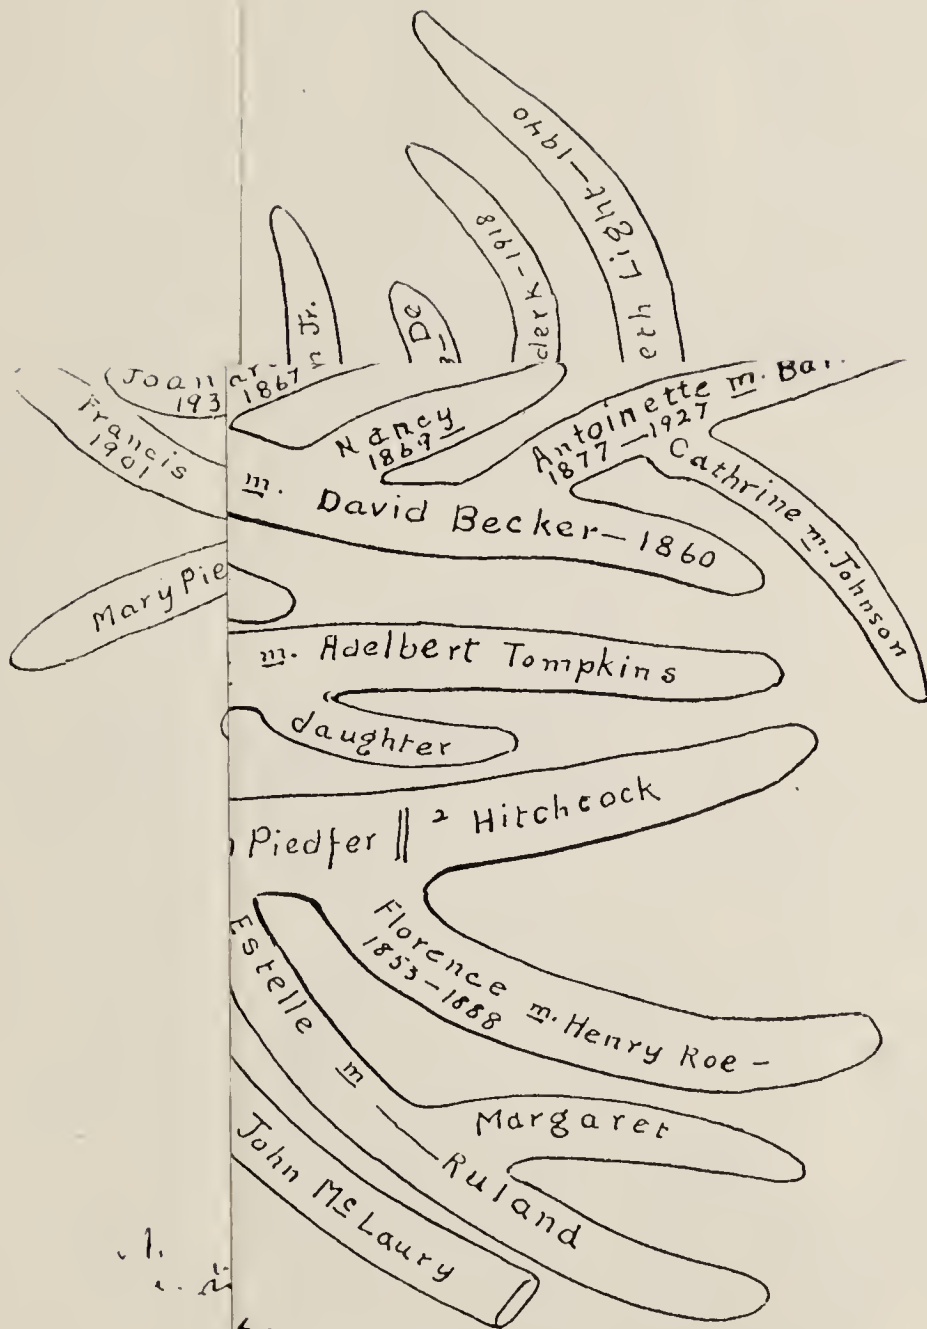 eth Light—1940
derk-1918
De
n Jr.
Joan
193
1867
Francis
1901
Nancy
1869
Antoinette m. Bar.
1877—1927
Cathrine m. Johnson
m. David Becker—1860
Mary Pie
m. Adelbert Tompkins
daughter
Piedfer || 2 Hitchcock
Florence m. Henry Roe—
1853—1888
Estelle m — Ruland
Margaret
John Mc Laury